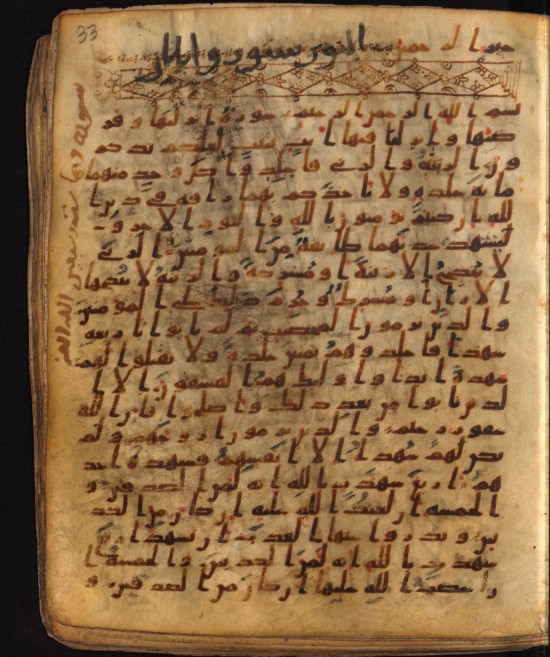 33
النور ستون و
بسم الله الرحمن الرحيم سورة انزلنها وفر
ضنها وانزلنا فيها ايت بينت لعلكم تذكرو
ن الزنية والزني فاجلدوا كل وحد منهما
ماية جلدة ولا تاخذكم بهما رافة في دين ا
لله ان كنتم تومنون بالله واليوم الاخر و
ليشهد عذبهما طايفة من المومنين الزني
لا ينكح الا زنية او مشركة والزنية لا ينكحها
الا زان او مشرك وحرم ذلك على المومنين
والذين يرمون المحصنت ثم لم ياتوا باربعة
شهدا فاجلدوهم ثمنين جلدة ولا تقبلوا لهم
شهدة ابدا واوليك هم الفسقون الا ا
لذين تابوا من بعد ذلك واصلحوا فان الله
غفور رحيم والذين يرمون ازوجهم ولم
يكن لهم شهدا الا انفسهم فشهدة احد
هم اربع شهدت بالله انه لمن الصدقين و
الخمسة ان لعنت الله عليه ان كان من الكذ
بين ويدروا عنها العذب ان تشهد اربع
شهدت بالله انه لمن الكذبين والخمسة ا
ن غضب الله عليها ان كان من الصدقين و